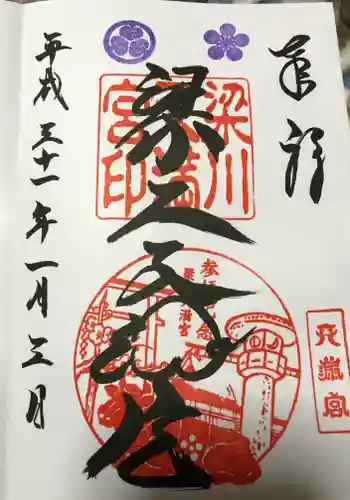 奉拝
天満宮
梁川天満宮
梁川
天満
宮印
参拝記念
平成三十一年一月三日